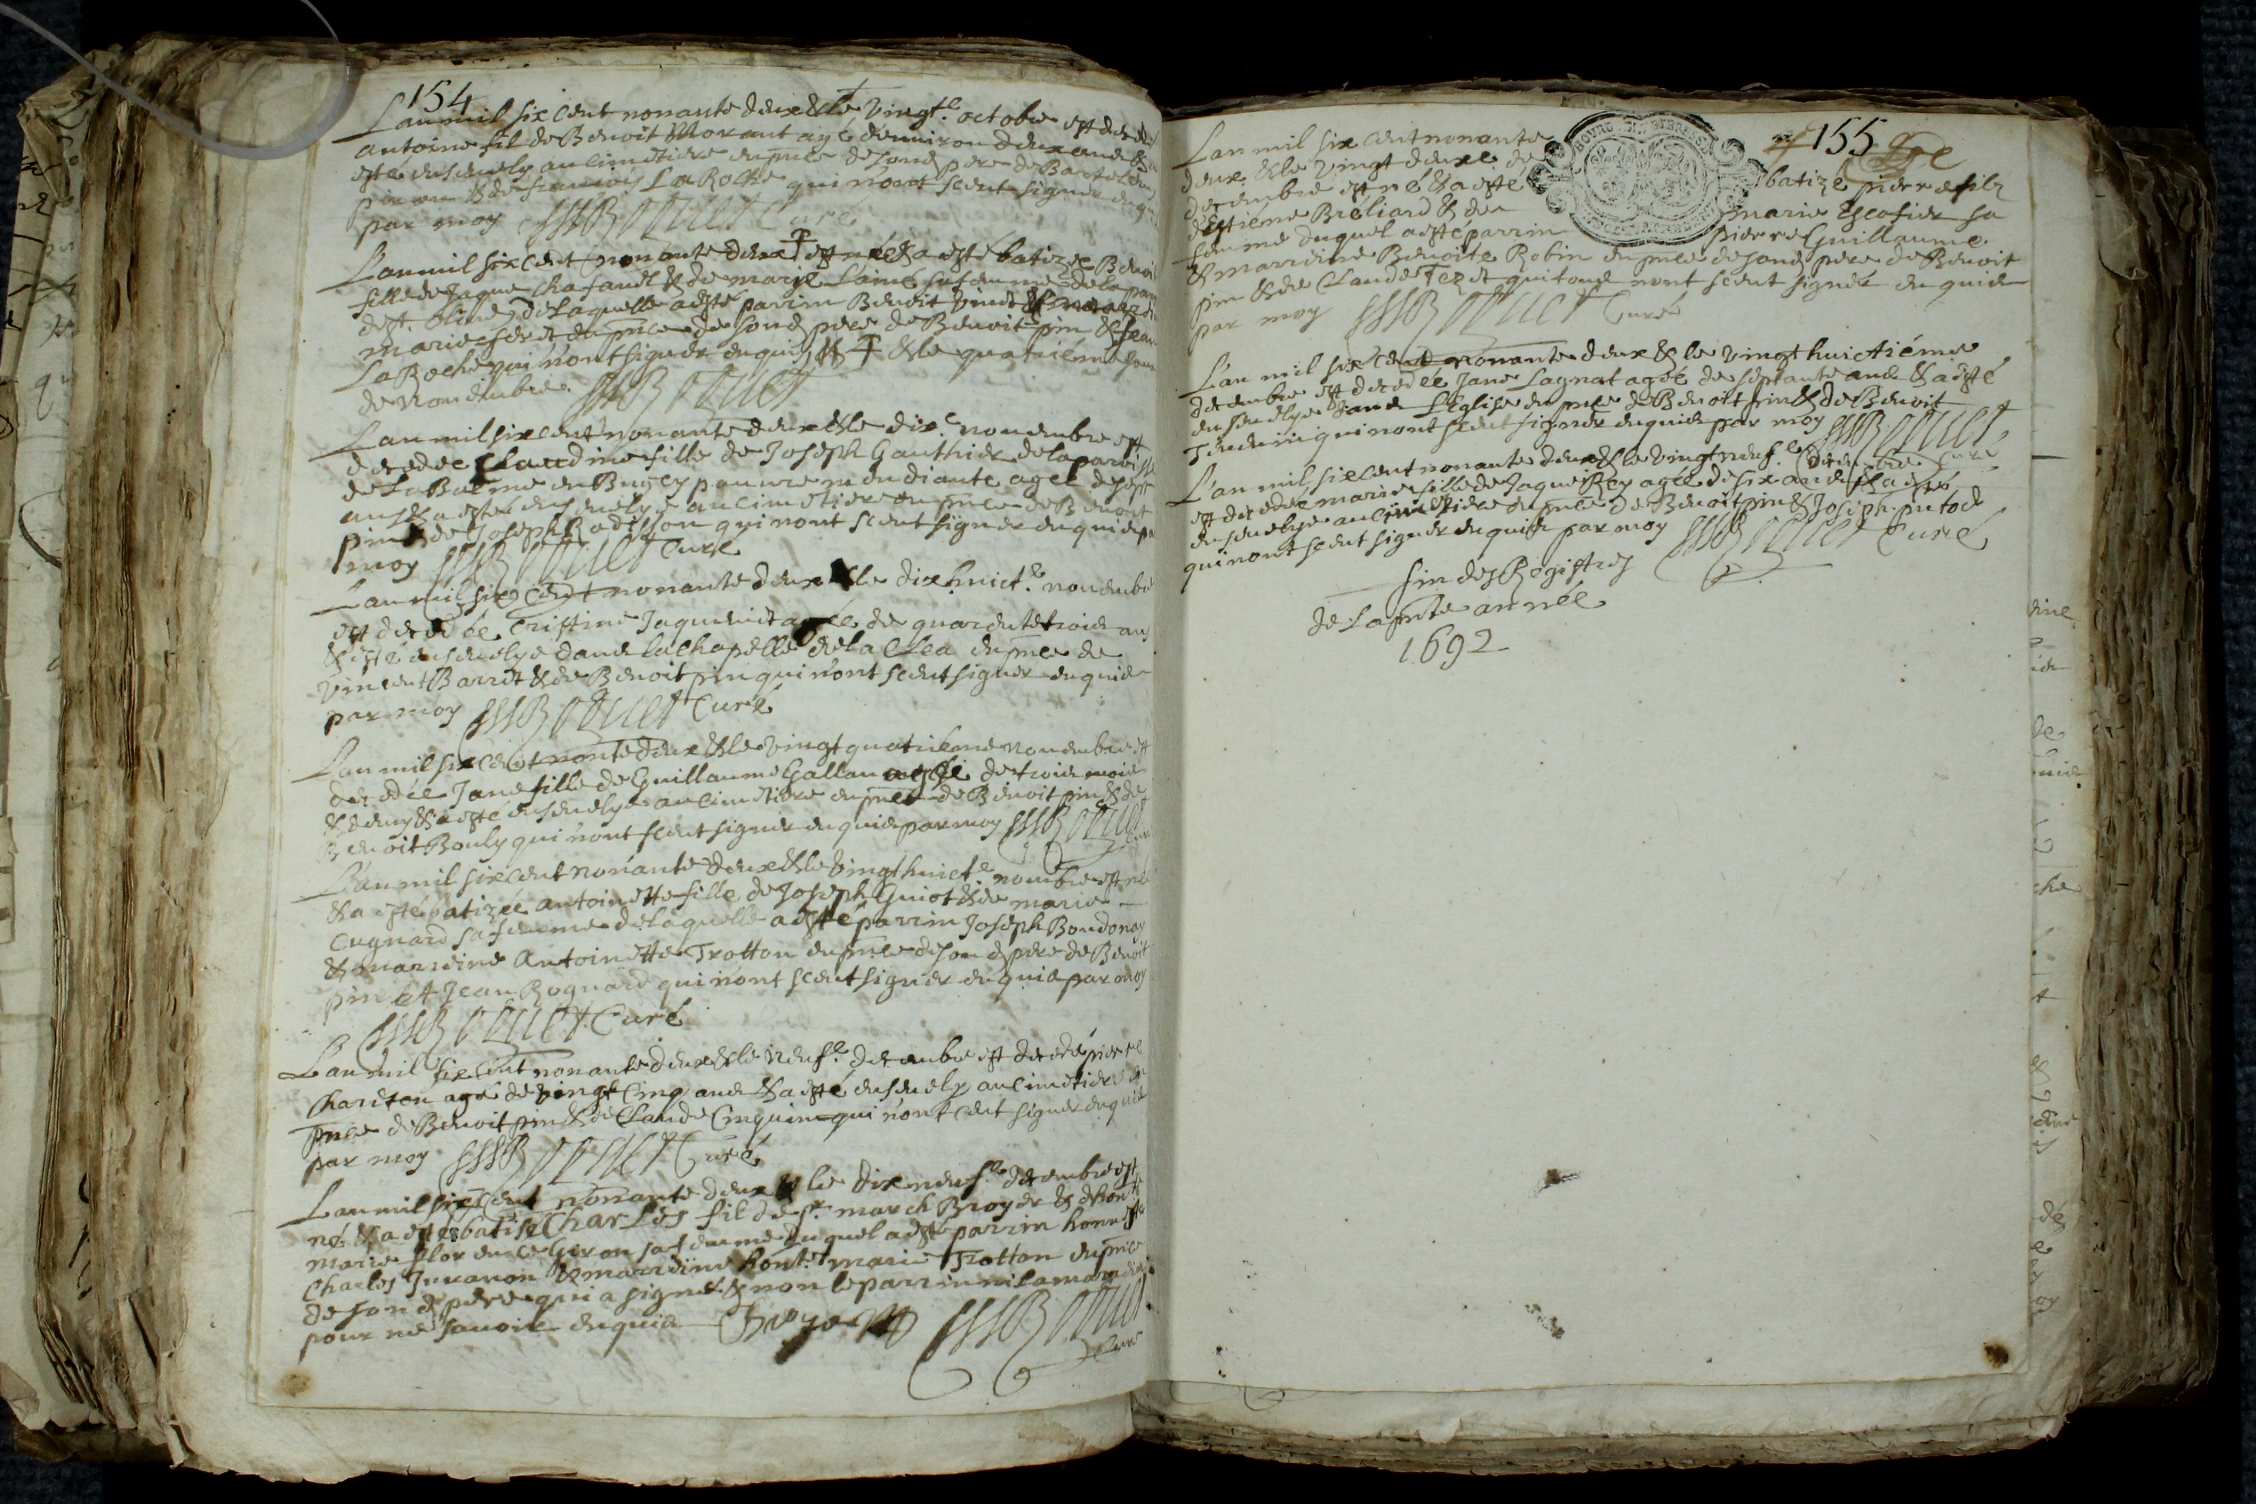 154
L'an mil six cent nonante deux & le vingt.e octobre est decede
antoine fil de Benoit Morant agé denuiron deux ans & a
esté enseuely au cimetiere en pnce de son d pere de Bartelemy
pin en & de francois La Roche qui n'ont sceut signer enquis
par moy Bouuet Curé
L'an mil six cent nonante deux † est née & a esté batizee Benoite
fille de Jaque Chafandt & de marie Lainé sa femme de la par
de st. olive, de laquelle a esté parrin Benoit & marrine
marie feret en pnce de son d pere de Benoit pin & Jean
La Roche qui n'ont signer enquis † & le quatriéme jour
de Nouembre. Bouuet
L'an mil six cent nonante deux & le dix.e nouembre est
decedee Claudine fille de Joseph Gauthier de la paroisse
de La Balme en Bugey pauure mendiante agee de sept
ans & a esté enseuelye au cimetiere en pnce de Benoit
pin & de Joseph Rodisson qui n'ont sceut signer enquis par
moy Bouuet Curé
L'an mil six cent nonante deux & le dix huict.e nouembre
est decedée Cristine Jaquemet agée de quarente trois ans
& esté enseuelye dans la Chapelle de la en pnce de
vincent Barret & de Benoit pin qui n'ont sceut signer enquis
par moy Bouuet Curé
L'an mil six cent nonte deux & le vingt quatriéme nouembre est
decedée Jane fille de Guillaume Gallan agée de trois mois
& demy & a esté enseuelye au cimetiere en pnce de Benoit pin & de
Benoit Bouly qui n'ont sceut signer enquis par moy Bouuet
Curé
L'an mil six cent nonante deux & le vingt huict.e nouembre est née
& a esté batizée antoinette fille de Joseph Guiot & de marie
Cugnard sa femme de laquelle a esté parrin Joseph Boudonay
& marreine Antoinette Trotton en pnce de son d pere de Benoit
pin et Jean Rognard qui n'ont sceut signer enquis par moy
Bouuet Curé
L'an mil six cent nonante deux & le neuf.e decembre est decedé pierre
Chareton agé de vingt Cinq ans & a esté enseuely au cimetiere en
pnce de Benoit pin & de Claude Cinquin qui n'ont sceut signer enquis
par moy Bouuet Curé
L'an mil six cent nonante deux & le dix neuf.e decembre est
né & a esté batisé Charles fil de sr. march Broyer & d'honte
marie florence Geron sa femme duquel a esté parrin honneste
Charles Juuanon & marreine honte marie Trotton en pnce
de son d pere qui a signé & non le parrin ni la marreine
pour ne sauoir enquis Broyer Bouuet
Curé
155
L'an mil six cent nonante
deux & le vingt deuxe de
decembre est né & a esté batizé pierre filz
d'Estiene Bréliard & de marie Escofier sa
femme duquel a esté parrin pierre Guillaume
& marreine Benoite Robin en pnce de son d pere de Benoit
pin & de Claude Feret qui tous n'ont sceut signér enquis
par moy Bouuet Curé
L'an mil six cent nonante deux & le vingt huictiéme
decembre est decedée Jane Lagnat agée de septante ans & a esté
enseuelye dans L'Eglise en pnce de Benoit pin & de Benoit
qui n'ont sceut signer enquis par moy Bouuet
Curé
L'an mil six cent nonante deux & le vingt neuf.e decembre
est decedée marie fille de Jaque Rey agée de six ans & a esté
enseuelye au cimetiere en pnce de Benoit pin & Joseph putod
qui n'ont sceut signer enquis par moy Bouuet Curé
fin des Registres
de La pnte année
1692